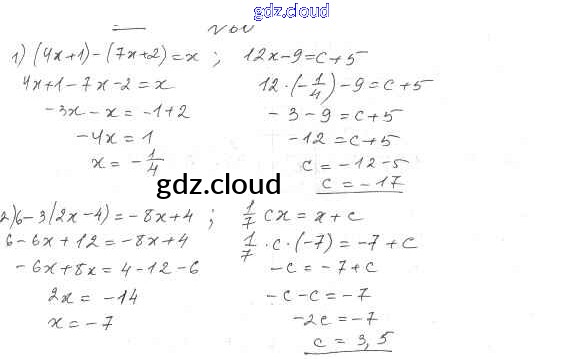 gdz.cloud
1) (4x+1)-(7x+2)=x ; 12x-9=c+5
4x+1-7x-2=x 12·(-1/4)-9=c+5
-3x-x=-1+2 -3-9=c+5
-4x=1 -12=c+5
x=-1/4 c=-12-5
c=-17
gdz.cloud
2) 6-3(2x-4)=-8x+4 ; 1/7 cx=x+c
6-6x+12=-8x+4 1/7·c·(-7)=-7+c
-6x+8x=4-12-6 -c=-7+c
2x=-14 -c-c=-7
x=-7 -2c=-7
c=3,5